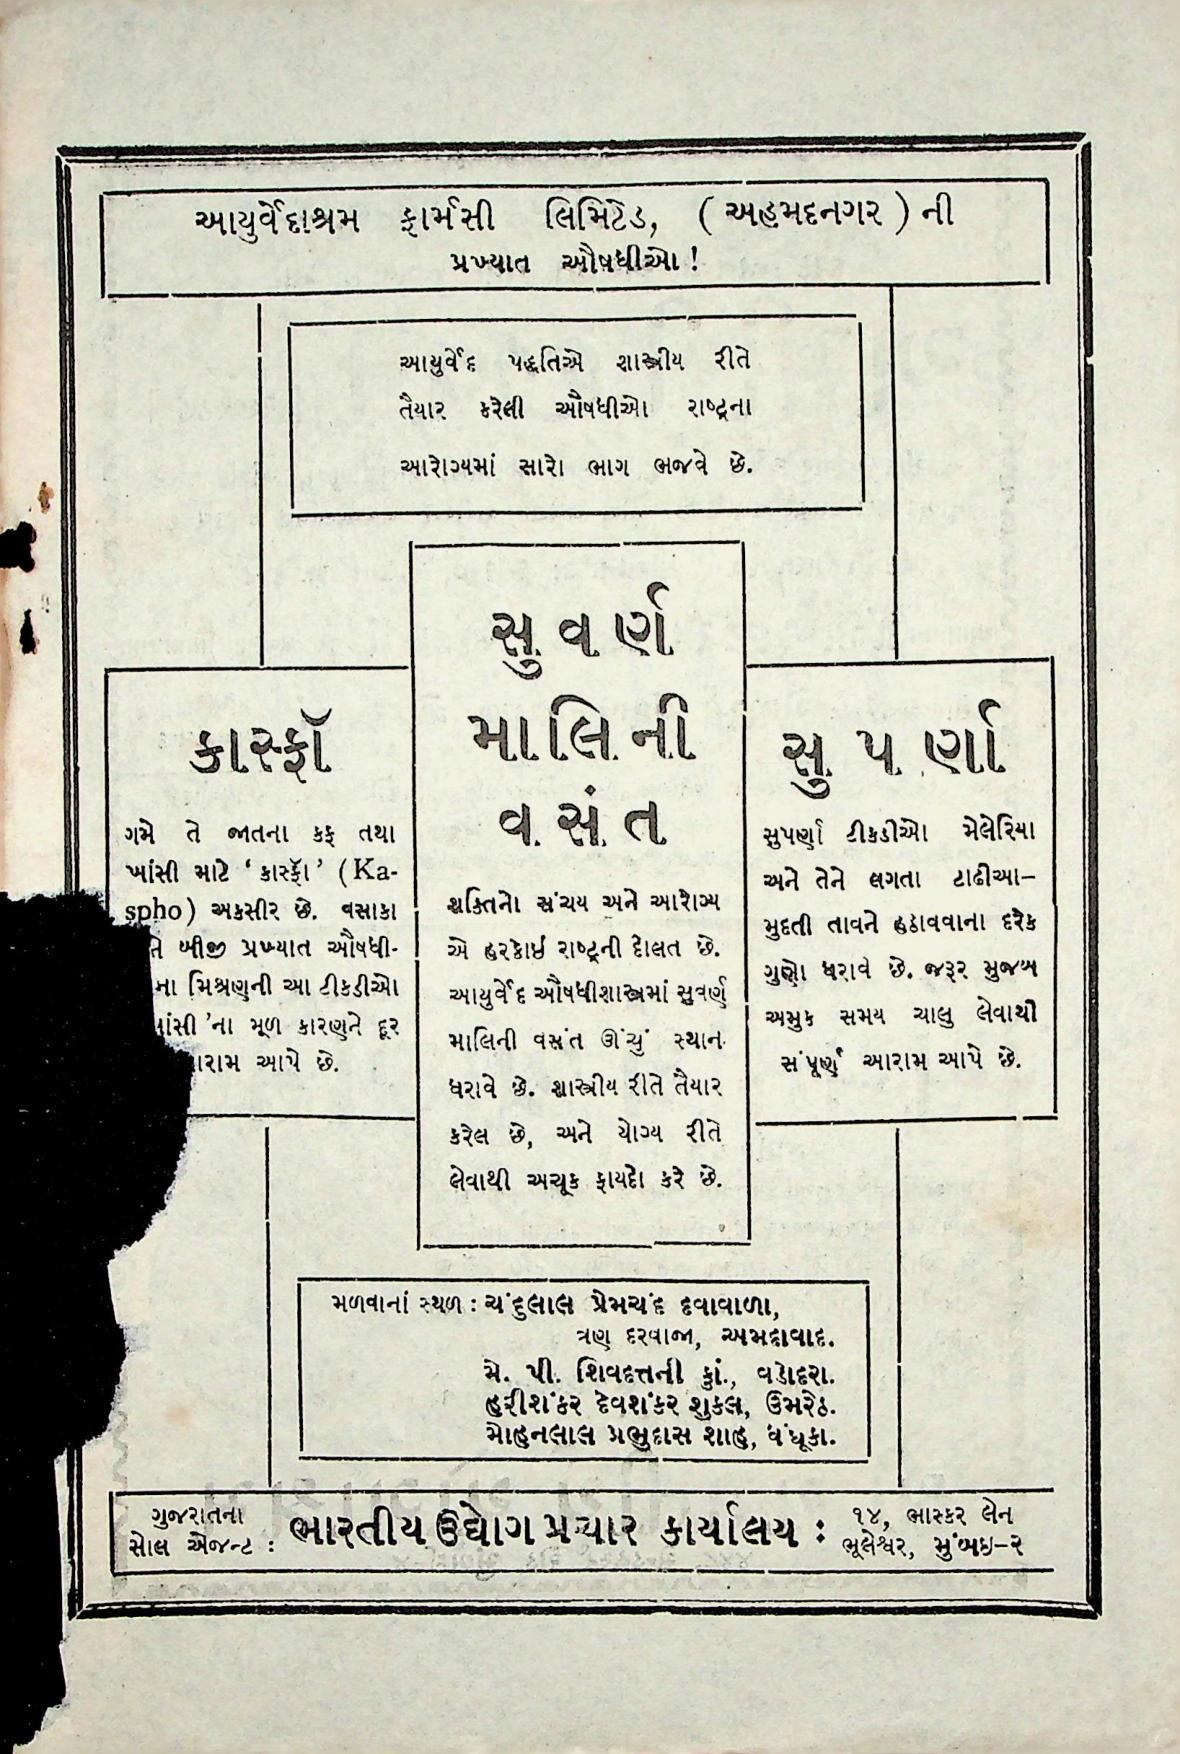 આયુર્વેદાશ્રમ ફાર્મસી લિમિટેડ, (અહમદનગર) ની
પ્રખ્યાત ઔષધીઓ !
આયુર્વેદ પદ્ધતિએ શાસ્ત્રીય રીતે
તૈયાર કરેલી ઔષધીઓ રાષ્ટ્રના
આરોગ્યમાં સારો ભાગ ભજવે છે.
કાસ્ફૉ
ગમે તે જાતના કફ તથા
ખાંસી માટે ‘કાસ્ફૉ’ (Ka-
spho) અકસીર છે. વસાકા
બીજી પ્રખ્યાત ઔષધી-
ના મિશ્રણની આ ટીકડીઓ
’ના મૂળ કારણને દૂર
આપે છે.
સુવર્ણ
માલિની
વસંત
શક્તિનો સંચય અને આરોગ્ય
એ હરકોઈ રાષ્ટ્રની દોલત છે.
આયુર્વેદ ઔષધીશાસ્ત્રમાં સુવર્ણ
માલિની વસંત ઊંચું સ્થાન
ધરાવે છે. શાસ્ત્રીય રીતે તૈયાર
કરેલ છે, અને યોગ્ય રીતે
લેવાથી અચૂક ફાયદો કરે છે.
સુપર્ણા
સુપર્ણા ટીકડીઓ મેલેરિયા
અને તેને લગતા ટાઢીઆ–
મુદતી તાવને હઠાવવાના દરેક
ગુણો ધરાવે છે. જરૂર મુજબ
અમુક સમય ચાલુ લેવાથી
સંપૂર્ણ આરામ આપે છે.
મળવાનાં સ્થળ : ચંદુલાલ પ્રેમચંદ દવાવાળા,
ત્રણ દરવાજા, અમદાવાદ.
મે. પી. શિવદત્તની કું., વડોદરા.
હરીશંકર દેવશંકર શુકલ, ઉમરેઠ.
મોહનલાલ પ્રભુદાસ શાહ, ધંધૂકા.
ગુજરાતના
સોલ એજન્ટ :
ભારતીય ઉદ્યોગ પ્રચાર કાર્યાલય :
૧૪, ભાસ્કર લેન
ભૂલેશ્વર, મુંબઇ–૨